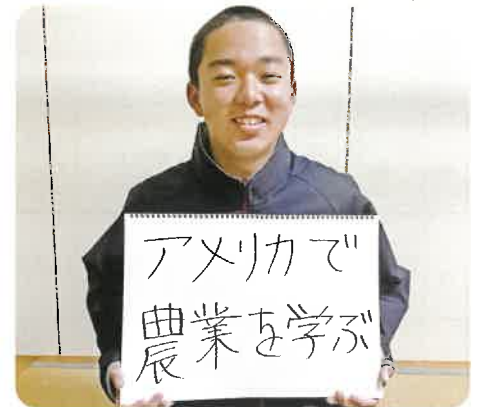 アメリカで
農業を学ぶ